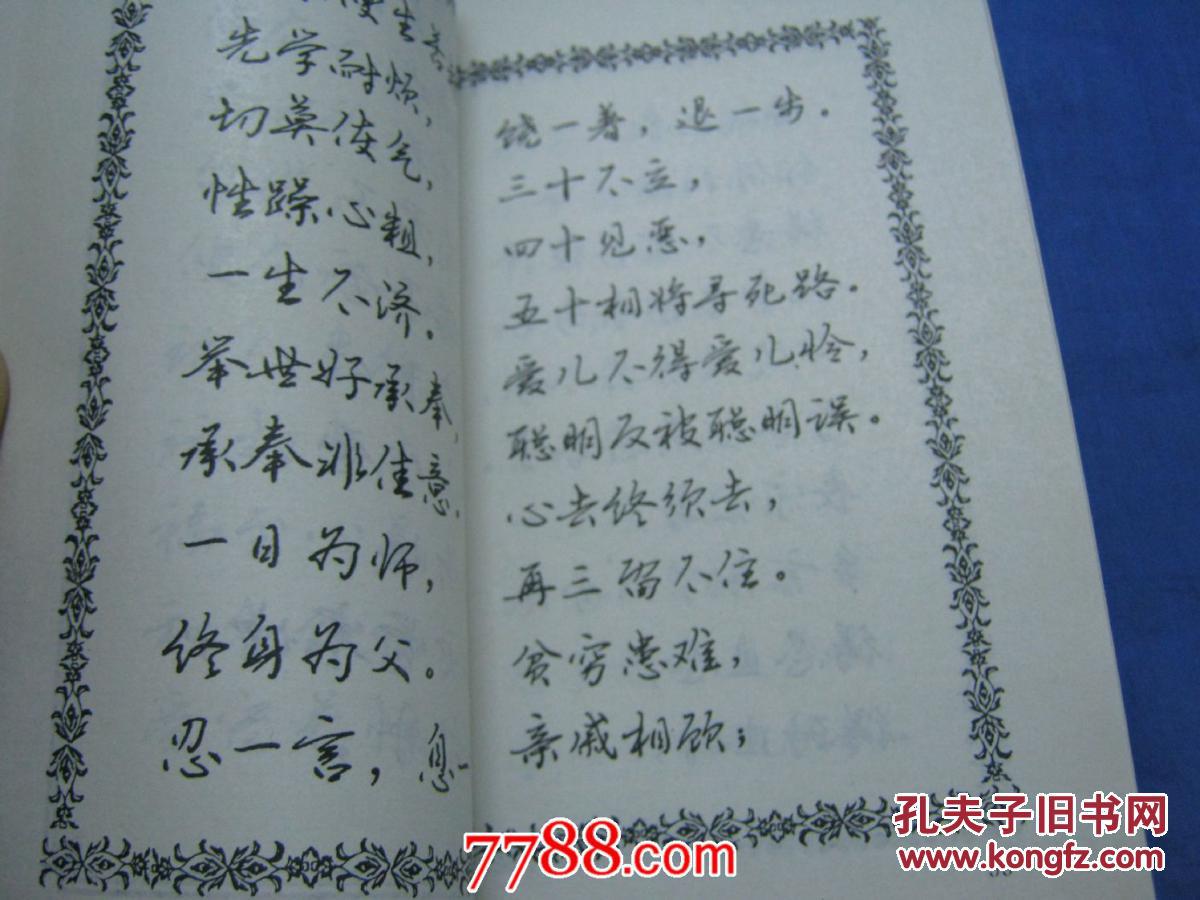 生
先学耐烦，
切莫使气，
性躁心粗，
一生不济。
举世好承奉，
承奉非佳意，
一日为师，
终身为父。
忍一言，息一
饶一着，退一步.
三十不立，
四十见恶，
五十相将寻死路.
爱儿不得爱儿怜，
聪明反被聪明误。
心去终须去，
再三留不住。
贫穷患难，
亲戚相顾；
7788.com
孔夫子旧书网
www.kongfz.com